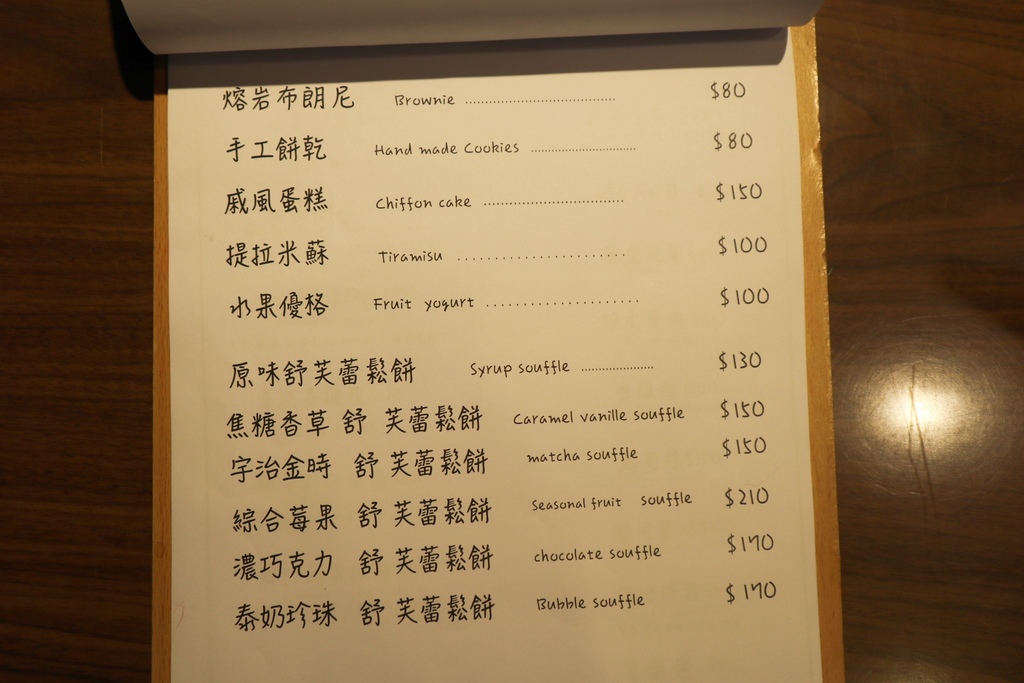 熔岩布朗尼 Brownie ........................................ $80
手工餅乾 Hand made Cookies ............................ $80
戚風蛋糕 Chiffon cake ..................................... $150
提拉米蘇 Tiramisu ....................... $100
水果優格 Fruit yogurt ..................... $100
原味舒芙蕾鬆餅 Syrup souffle ..................... $130
焦糖香草 舒 芙蕾鬆餅 Caramel vanille souffle $150
宇治金時 舒 芙蕾鬆餅 matcha souffle $150
綜合莓果 舒 芙蕾鬆餅 Seasonal fruit souffle $210
濃巧克力 舒 芙蕾鬆餅 chocolate souffle $170
泰奶珍珠 舒 芙蕾鬆餅 Bubble souffle $170